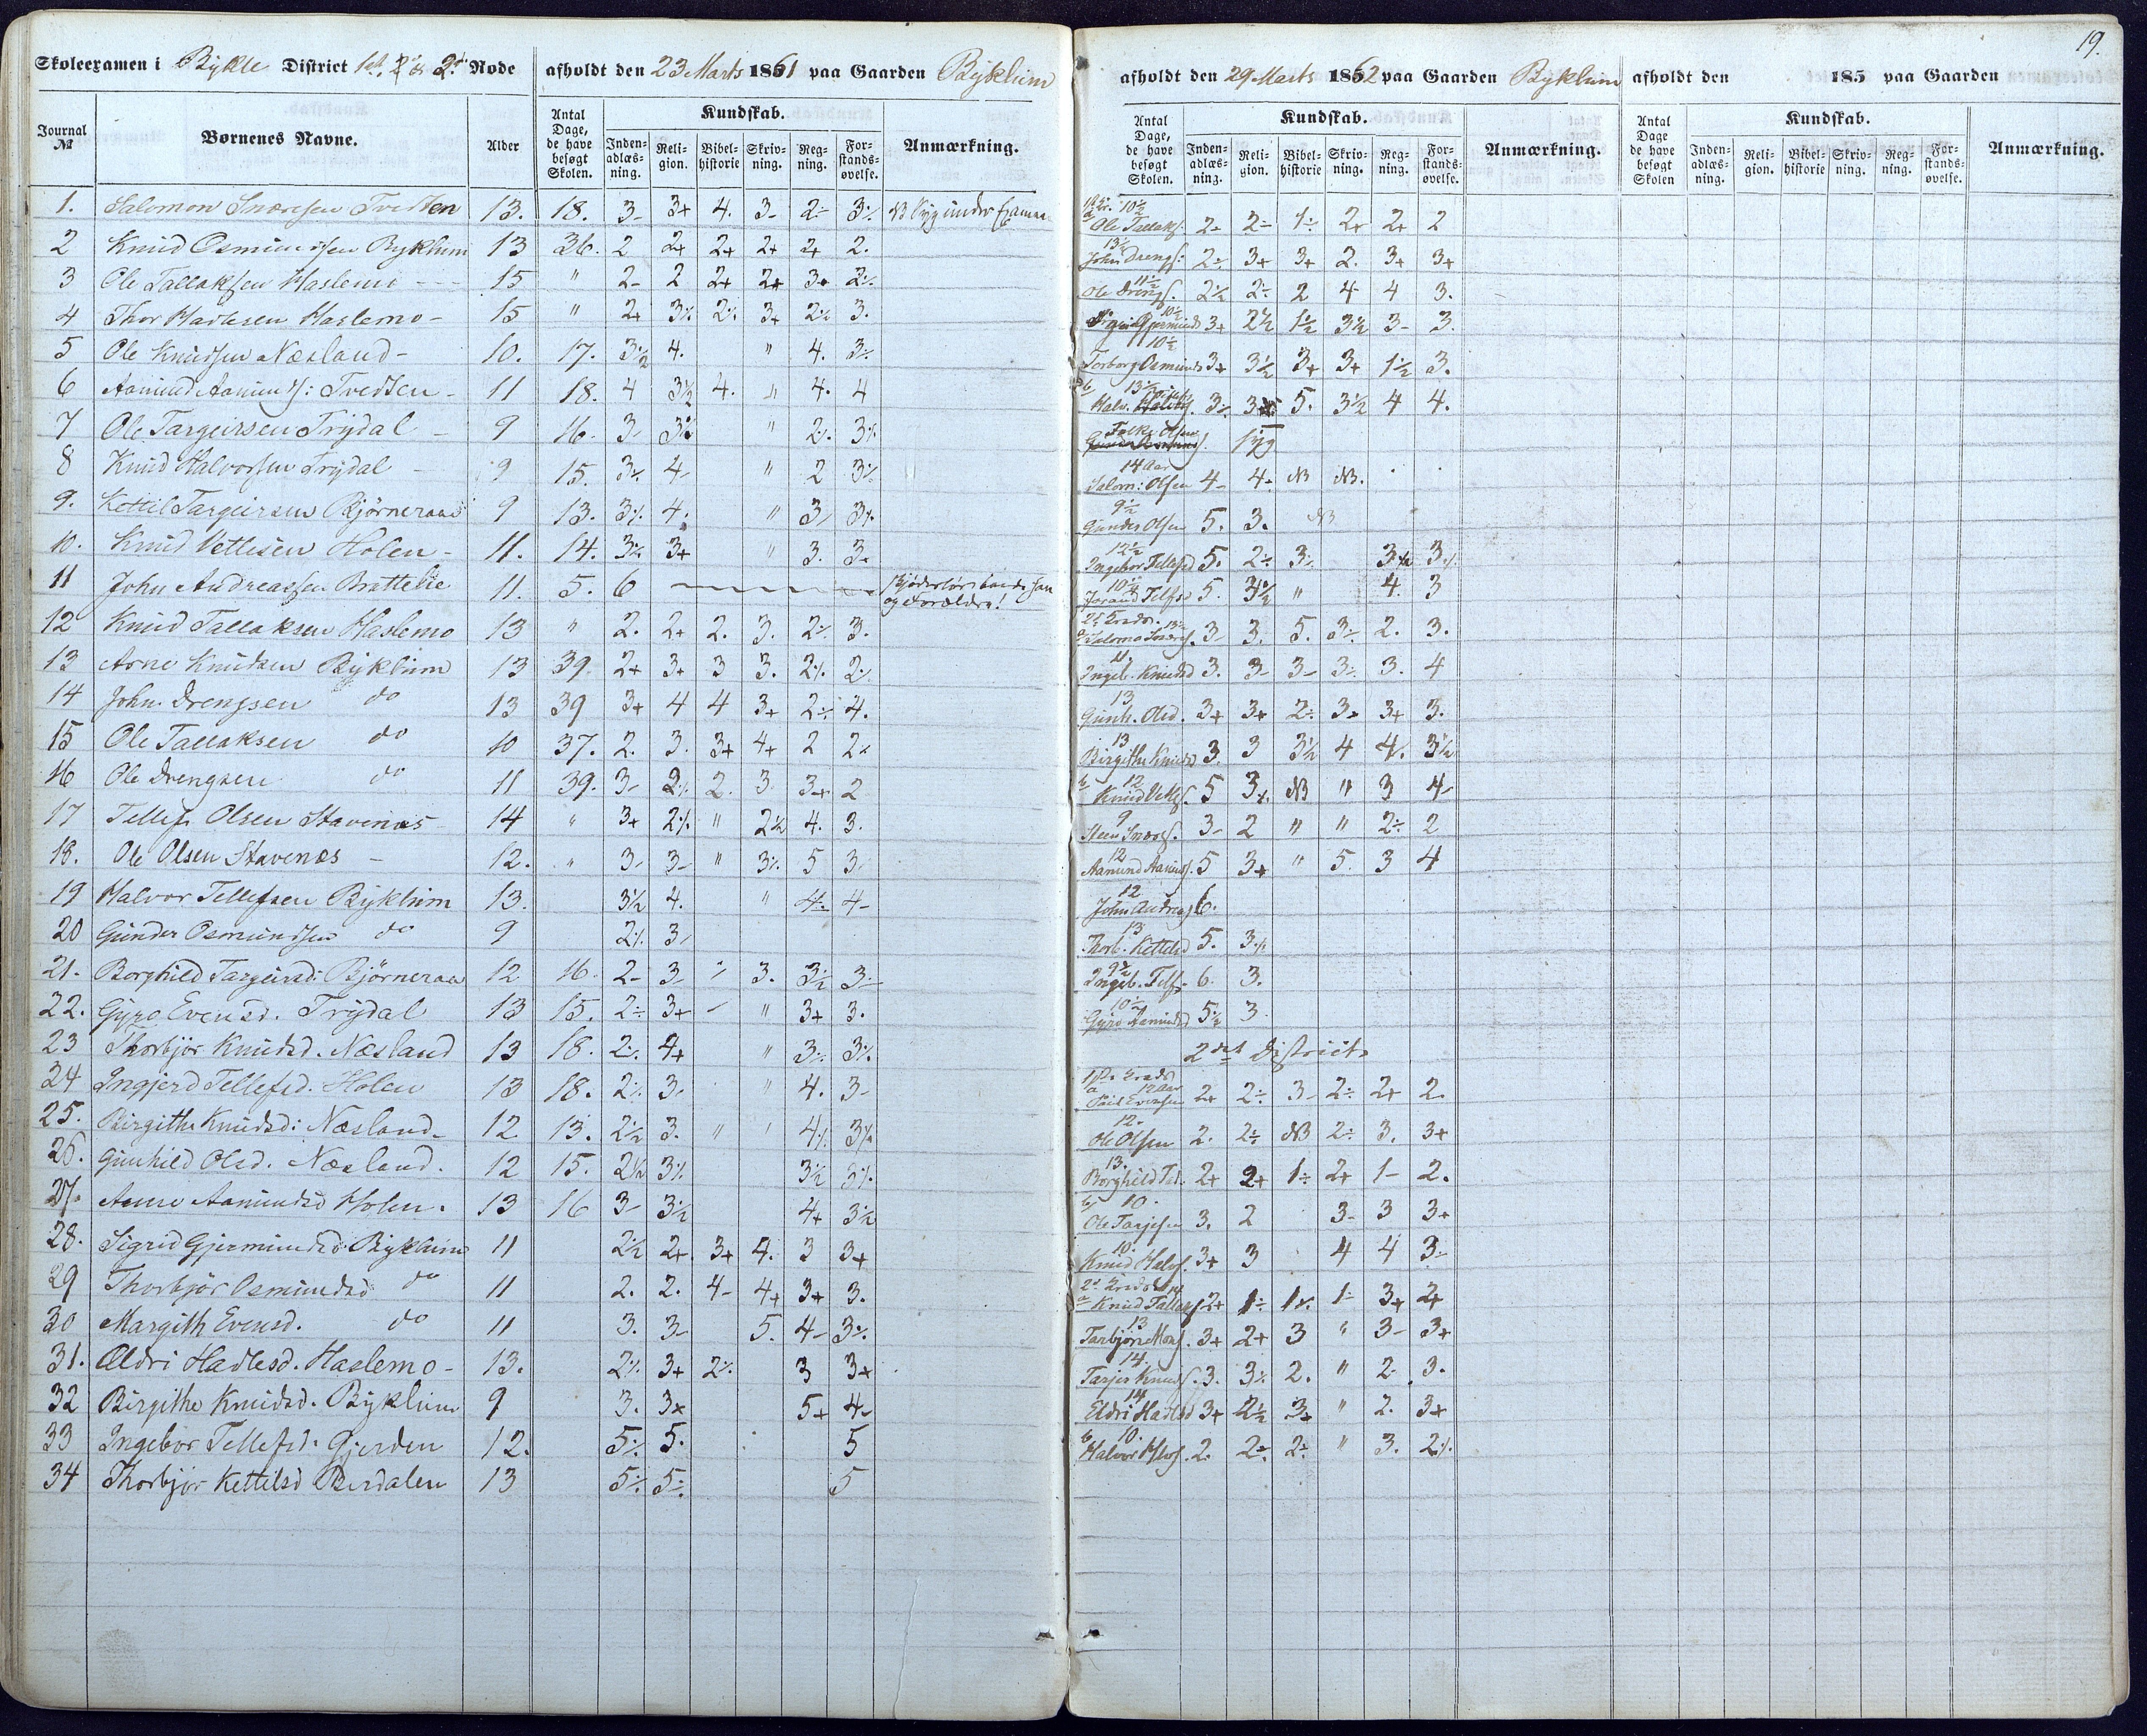 19.
Skoleexamen i Bykle District 1st & 2d Rode afholdt den 23 Marts 1861 paa Gaarden Byklum
Journal № Børnenes Navne. Alder Antal Dage, de have besøgt Skolen. Kundskab. Indenadlæsning. Religion. Bibelhistorie Skrivning. Regning. Forstandsøvelse. Anmærkning.
1. Salomon Snæresen Tvedten 13. 18. 3- 3+ 4. 3- 2÷ 3⁒ NB Syg under Examen
2 Knud Osmundsen Byklum 13 36. 2 2+ 2+ 2+ 2+ 2.
3 Ole Tallaksen Haslemo 15 " 2- 2 2+ 2+ 3+ 2⁒
4 Thor Hadlesen Haslemo 15 " 2+ 3⁒ 2⁒ 3+ 2⁒ 3.
5 Ole Knudsen Næsland 10. 17. 3½ 4. " 4. 3⁒
6 Aamund Aamunds: Tvedten 11 18. 4 3½ 4. " 4. 4
7 Ole Targeirsen Trydal 9 16. 3- 3⁒ " 2⁒ 3⁒
8 Knud Halvorsen Trydal 9 15. 3⁒ 4- " 2 3⁒
9. Kettil Targeirsen Bjørneraa 9 13. 3⁒ 4. " 3- 3⁒
10. Knud Vetlesen Holen 11. 14. 3⁒ 3+ " 3. 3.
11 John Andreassen Brattelie 11. 5. 6 og Forældre!
12 Knud Tallaksen Haslemo 13 " 2. 2+ 2. 3. 2⁒ 3.
13 Arne Knudsen Byklum 13 39. 2+ 3+ 3 3. 2⁒ 2⁒
14 John Drengsen do 13 39 3+ 4 4 3+ 2÷ 4.
15 Ole Tallaksen do 10 37. 2. 3. 3+ 4+ 2 2.
16 Ole Drengsen do 11 39. 3- 2⁒ 2. 3. 3+ 2
17 Tellef Olsen Stavenæs 14 " 3+ 2⁒ " 2½ 4. 3.
18. Ole Olsen Stavenæs 12. " 3- 3- " 3⁒ 5 3-
19 Halvor Tellefsen Byklum 13. 3½ 4. " 4÷ 4-
20 Gunder Osmundsen do 9 2⁒ 3-
21. Borghild Targeirsd: Bjørneraa 12 16. 2- 3- 3. 3½ 3-
22. Gyro Evensd. Trydal 13 15. 2÷ 3+ " 3+ 3.
23 Thorbjør Knudsd. Næsland 13 18. 2⁒ 4+ " 3⁒ 3⁒
24 Ingjerd Tellefsd. Holen 13 18. 2⁒ 3. " 4. 3-
25. Birgithe Knudsd: Næsland 12 13. 2½ 3. " 4⁒ 3⁒
26. Gunhild Olsd. Næsland. 12 15. 2½ 3⁒ 3½ 3⁒
27. Anne Aamundsd Holen. 13 16 3- 3½ 4+ 3½
28. Sigrid Gjermundsd. Byklum 11 2½ 2+ 3+ 4. 3 3+
29 Thorbjør Osmundsd do 11 2. 2. 4- 4+ 3+ 3.
30 Margith Evensd. do 11 3. 3- 5. 4- 3⁒
31. Eldri Hadlesd. Haslemo 13. 2⁒ 3+ 2⁒ 3 3+
32 Birgithe Knudsd. Byklum 9 3. 3+ 5+ 4-
33 Ingebor Tellefsd. Gjerden 12. 5⁒ 5. 5
34 Thorbjør Kettilsd Berdalen 13 5⁒ 5⁒ 5
afholdt den 29 Marts 1862 paa Gaarden Byklum afholdt den 185 paa Gaarden
Antal Dage, de have besøgt Skolen. Kundskab. Indenadlæsning. Religion. Bibelhistorie Skrivning. Regning. Forstandsøvelse. Anmærkning. Antal Dage de have besøgt Skolen Kundskab. Indenadlæsning. Religion. Bibelhistorie Skrivning. Regning. Forstandsøvelse. Anmærkning.
10½
Ole Tallaks. 2- 2- 1÷ 2+ 2+ 2
13½
John Drengs: 2÷ 3+ 3+ 2. 3+ 3+
11½
Ole Drengs. 2½ 2÷ 2 4 4 3.
10½
Sigrid Gjermunds 3+ 2½ 1½ 3½ 3- 3.
10½
Torborg Osmunds 3+ 3½ 3+ 3+ 1½ 3.
b 13½
Halv. 3⁒ 5. 3½ 4 4.
Folke Olsen
syg
14 Aar
Salom: Olsen 4- 4. NB NB.
9½
Gunder Olsen 5. 3. NB
12½
Ingebor Tellefsd 5. 2÷ 3⁒ 3½ 3⁒
10½
Jorand Telfsd 5. 3½ " 4. 3
2de Grad. 13½
Salomo Snæres. 3- 3. 5. 3÷ 2. 3.
11.
Ingeb. Knudsd 3. 3- 3- 3⁒ 3. 4
13
Gunh. Olsd. 3+ 3+ 2÷ 3+ 3+ 3.
13
Birgithe Knudsd 3. 3 3½ 4 4. 3½
b 12
Knud Vetles. 5 3⁒ NB " 3 4-
9
Steen Snæres. 3- 2 " " 2÷ 2
12
Aamund Aamunds. 5 3+ " 5. 3 4
12
John Andreas 6.
13
Thorb. Kettelsd 5. 3⁒
9½
Ingeb. Telfs. 6. 3.
10½
Gyro Aamundsd 5½ 3
2det District
1ste Grad
a 12 Aar
Poul Evensen 2+ 2÷ 3- 2÷ 2+ 2.
12.
Ole Olsen 2. 2÷ NB 2÷ 3. 3+
13.
Borghild Td. 2+ 2+ 1÷ 2+ 1- 2.
b 10.
Ole Tarjesen 3. 2 3- 3 3+
10.
Knud Halvs. 3+ 3 4 4 3÷
2d Grad 14
a Knud Tallaks 2+ 1÷ 1⁒ 1÷ 3+ 2+
13
Tarbjørn Mons. 3+ 2+ 3 " 3- 3+
14.
Tarjer Knuds. 3. 3⁒ 2. " 2 3.
14
Eldri Hadlsd 3+ 2½ 3+ " 2. 3+
b 10.
Halvor Hlvs. 2. 2÷ 2÷ " 3. 2⁒